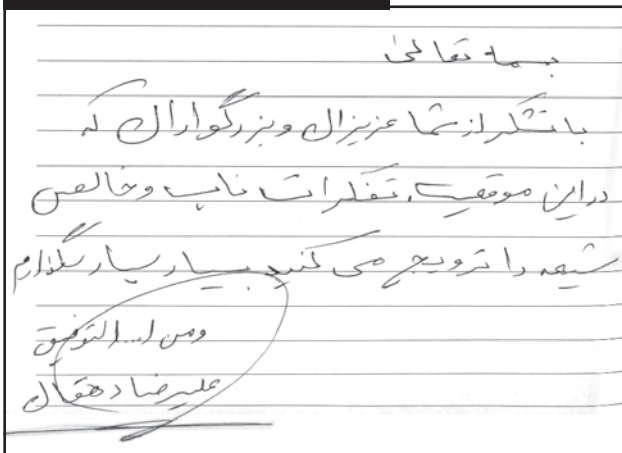 بسمه تعالی
با تشکر از شما عزیزان و بزرگواران که
در این موقعیت، تفکرات ناب و خالص
شیعه را ترویج می کنید بسیار بسیار سپاسگذارم
ومن ا... التوفیق
علیرضا دهقان